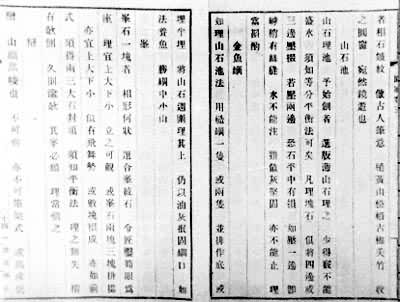 者相石皴紋 倣古人筆意 植黃山松栢古梅美竹 收
之圓窗 宛然鏡遊也
山石池
山石理池 予始創者 選版薄山石理之 少得竅不能
盛水 須知等分平衡法可矣 凡理塊石 俱將四邊或
三邊壓掇 若壓兩邊 恐石平中有損 如壓一邊 即
罅稍有絲縫 水不能注 雖做灰堅固 亦不能止 理
當斟酌
金魚缸
如理山石池法 用糙缸一隻 或兩隻 並排作底 或
埋半埋 將山石週圍理其上 仍以油灰抿固缸口 如
法養魚 勝缸中小山
峯
峯石一塊者 相形何狀 選合峯紋石 令匠鑿筍眼爲
座 理宜上大下小 立之可觀 或峯石兩塊三塊拼掇
亦宜上大下小 似有飛舞勢 或數塊掇成 亦如前
式 須得兩三大石封頂 須知平衡法 理之無失 稍
有欹側 久則逾欹 其峯必頹 理當慎之
巒
巒 山頭高峻也 不可齊 亦不可筆架式 或高或低